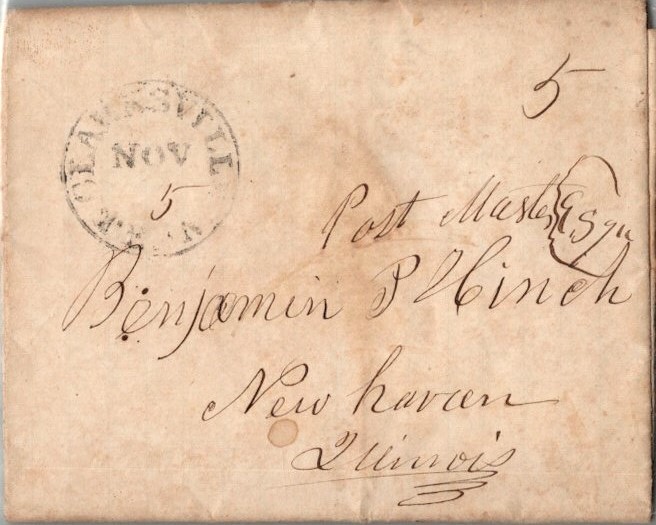 5
CLARKSVILLE
NOV
5
ARK
Post Master Esqu
Benjamin P Hinch
New haven
Illinois